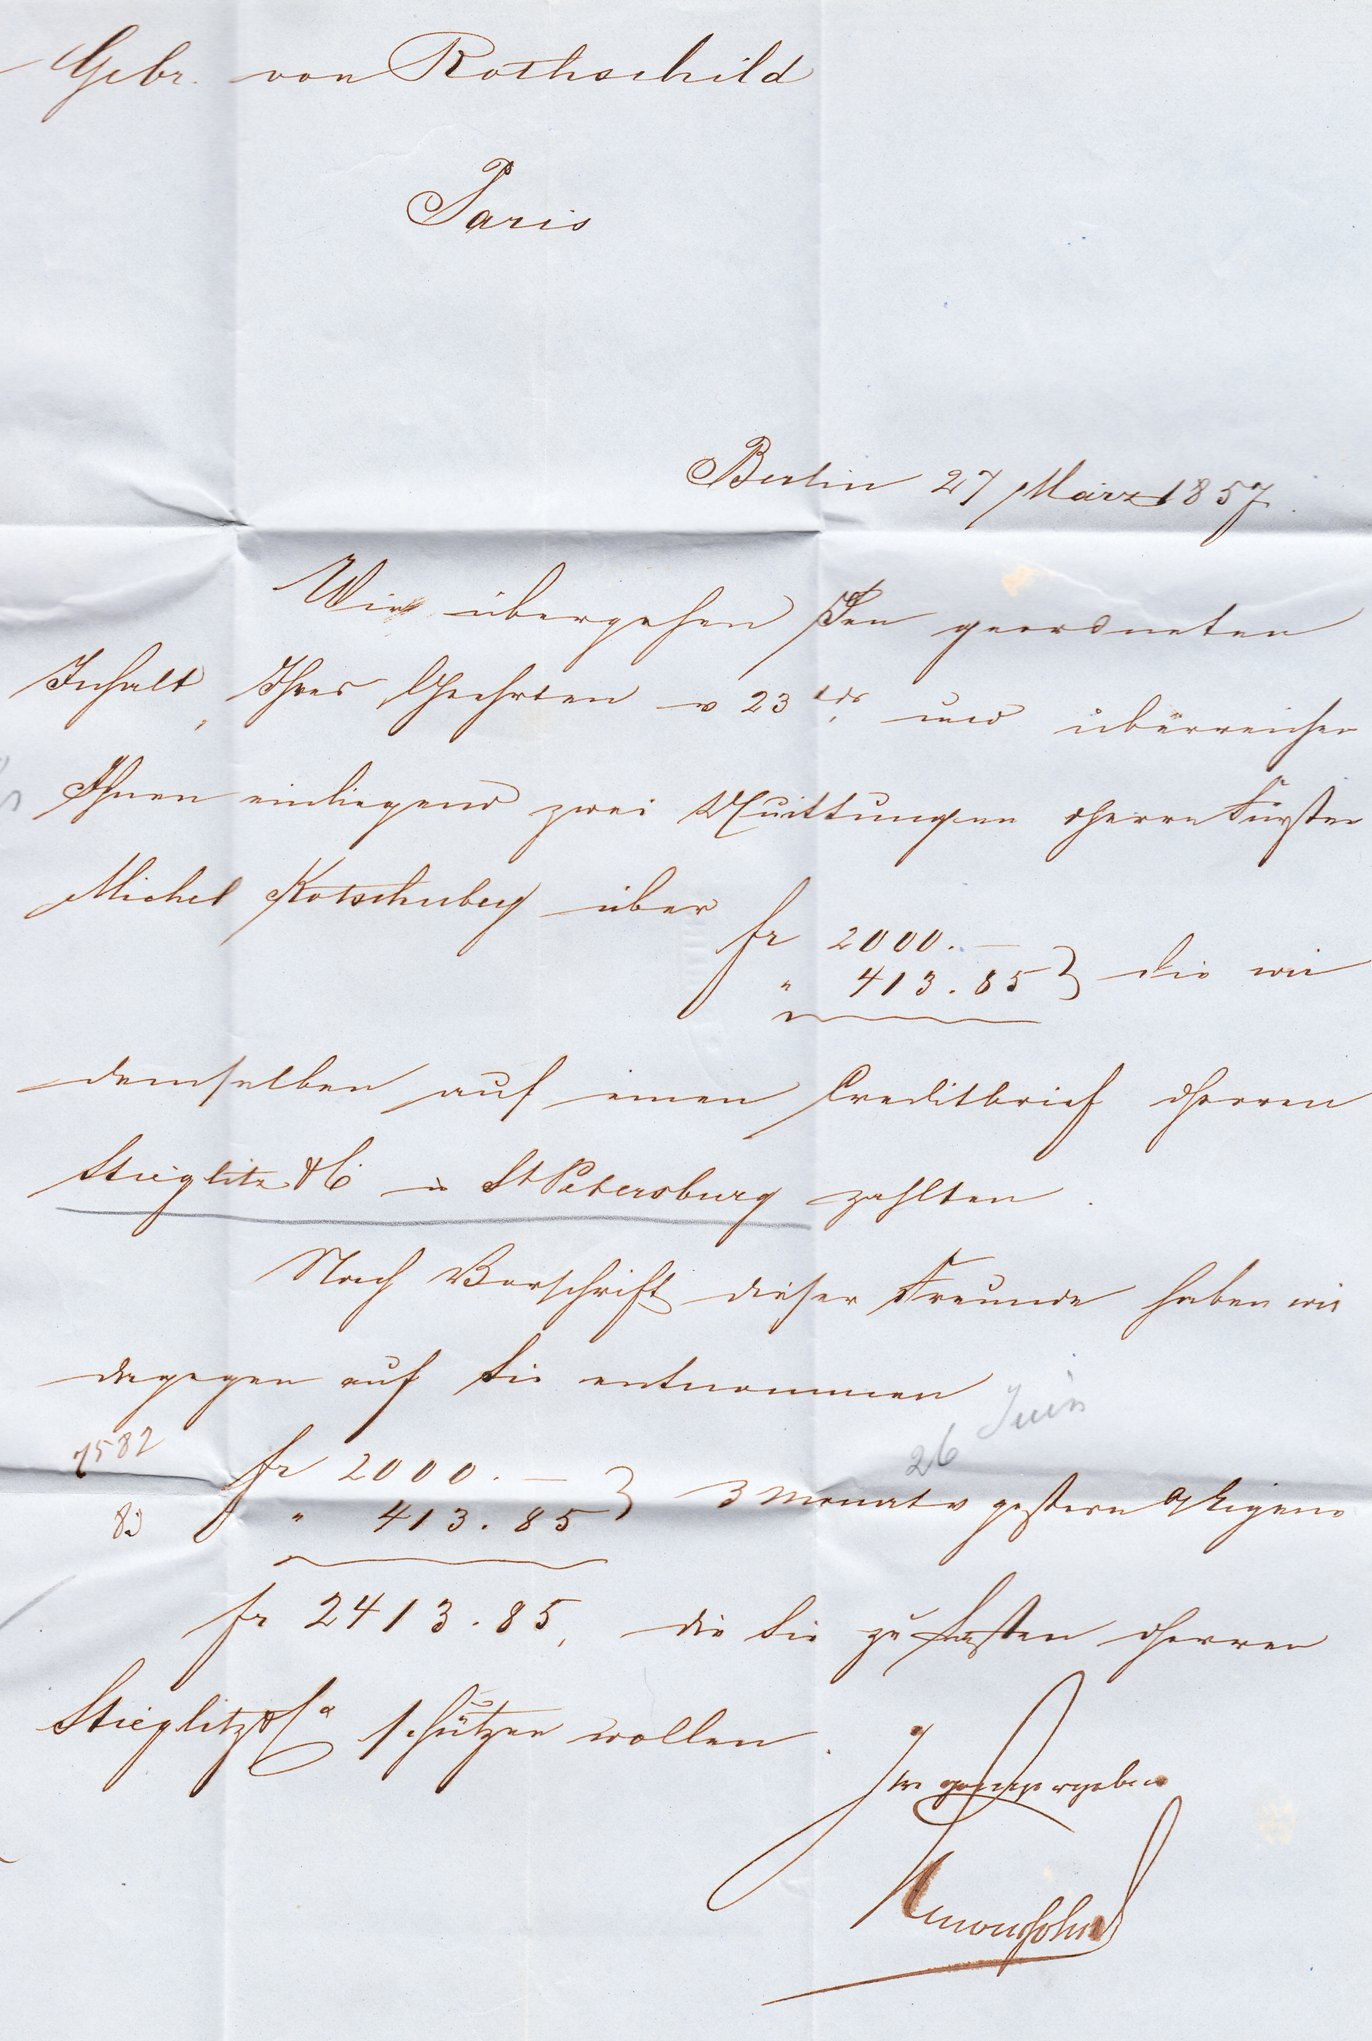 Gebr. von Rothschild
Paris
Berlin 27 März 1857.
Wir übergehen den geordneten
Inhalt Ihres Geehrten v 23 und überreichen
Ihnen einliegend zwei Quittungen Herrn Fürsten
Michel Kotschubey über
fr 2000.—
" 413.85 } die wir
demselben auf einen Creditbrief Herren
Stieglitz & C in St Petersburg zahlten.
Nach Vorschrift dieser Freunde haben wir
dagegen auf Sie entnommen
26 Juin
7582 fr 2000.—
83 " 413.85 } 3 Monat v gestern O/ Eigene
fr 2413.85, die Sie zu Lasten Herren
Stieglitz & Co schützen wollen.